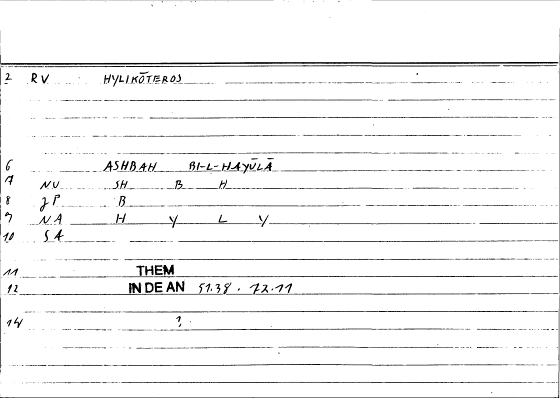 2 RV HYLIKŌTEROS
6 ASHBAH BI-L-HAYŪLĀ
7 NU SH B H
8 JP B
9 NA H Y L Y
10 SA
11 THEM
12 IN DE AN 51.38 . 72.11
14 ?